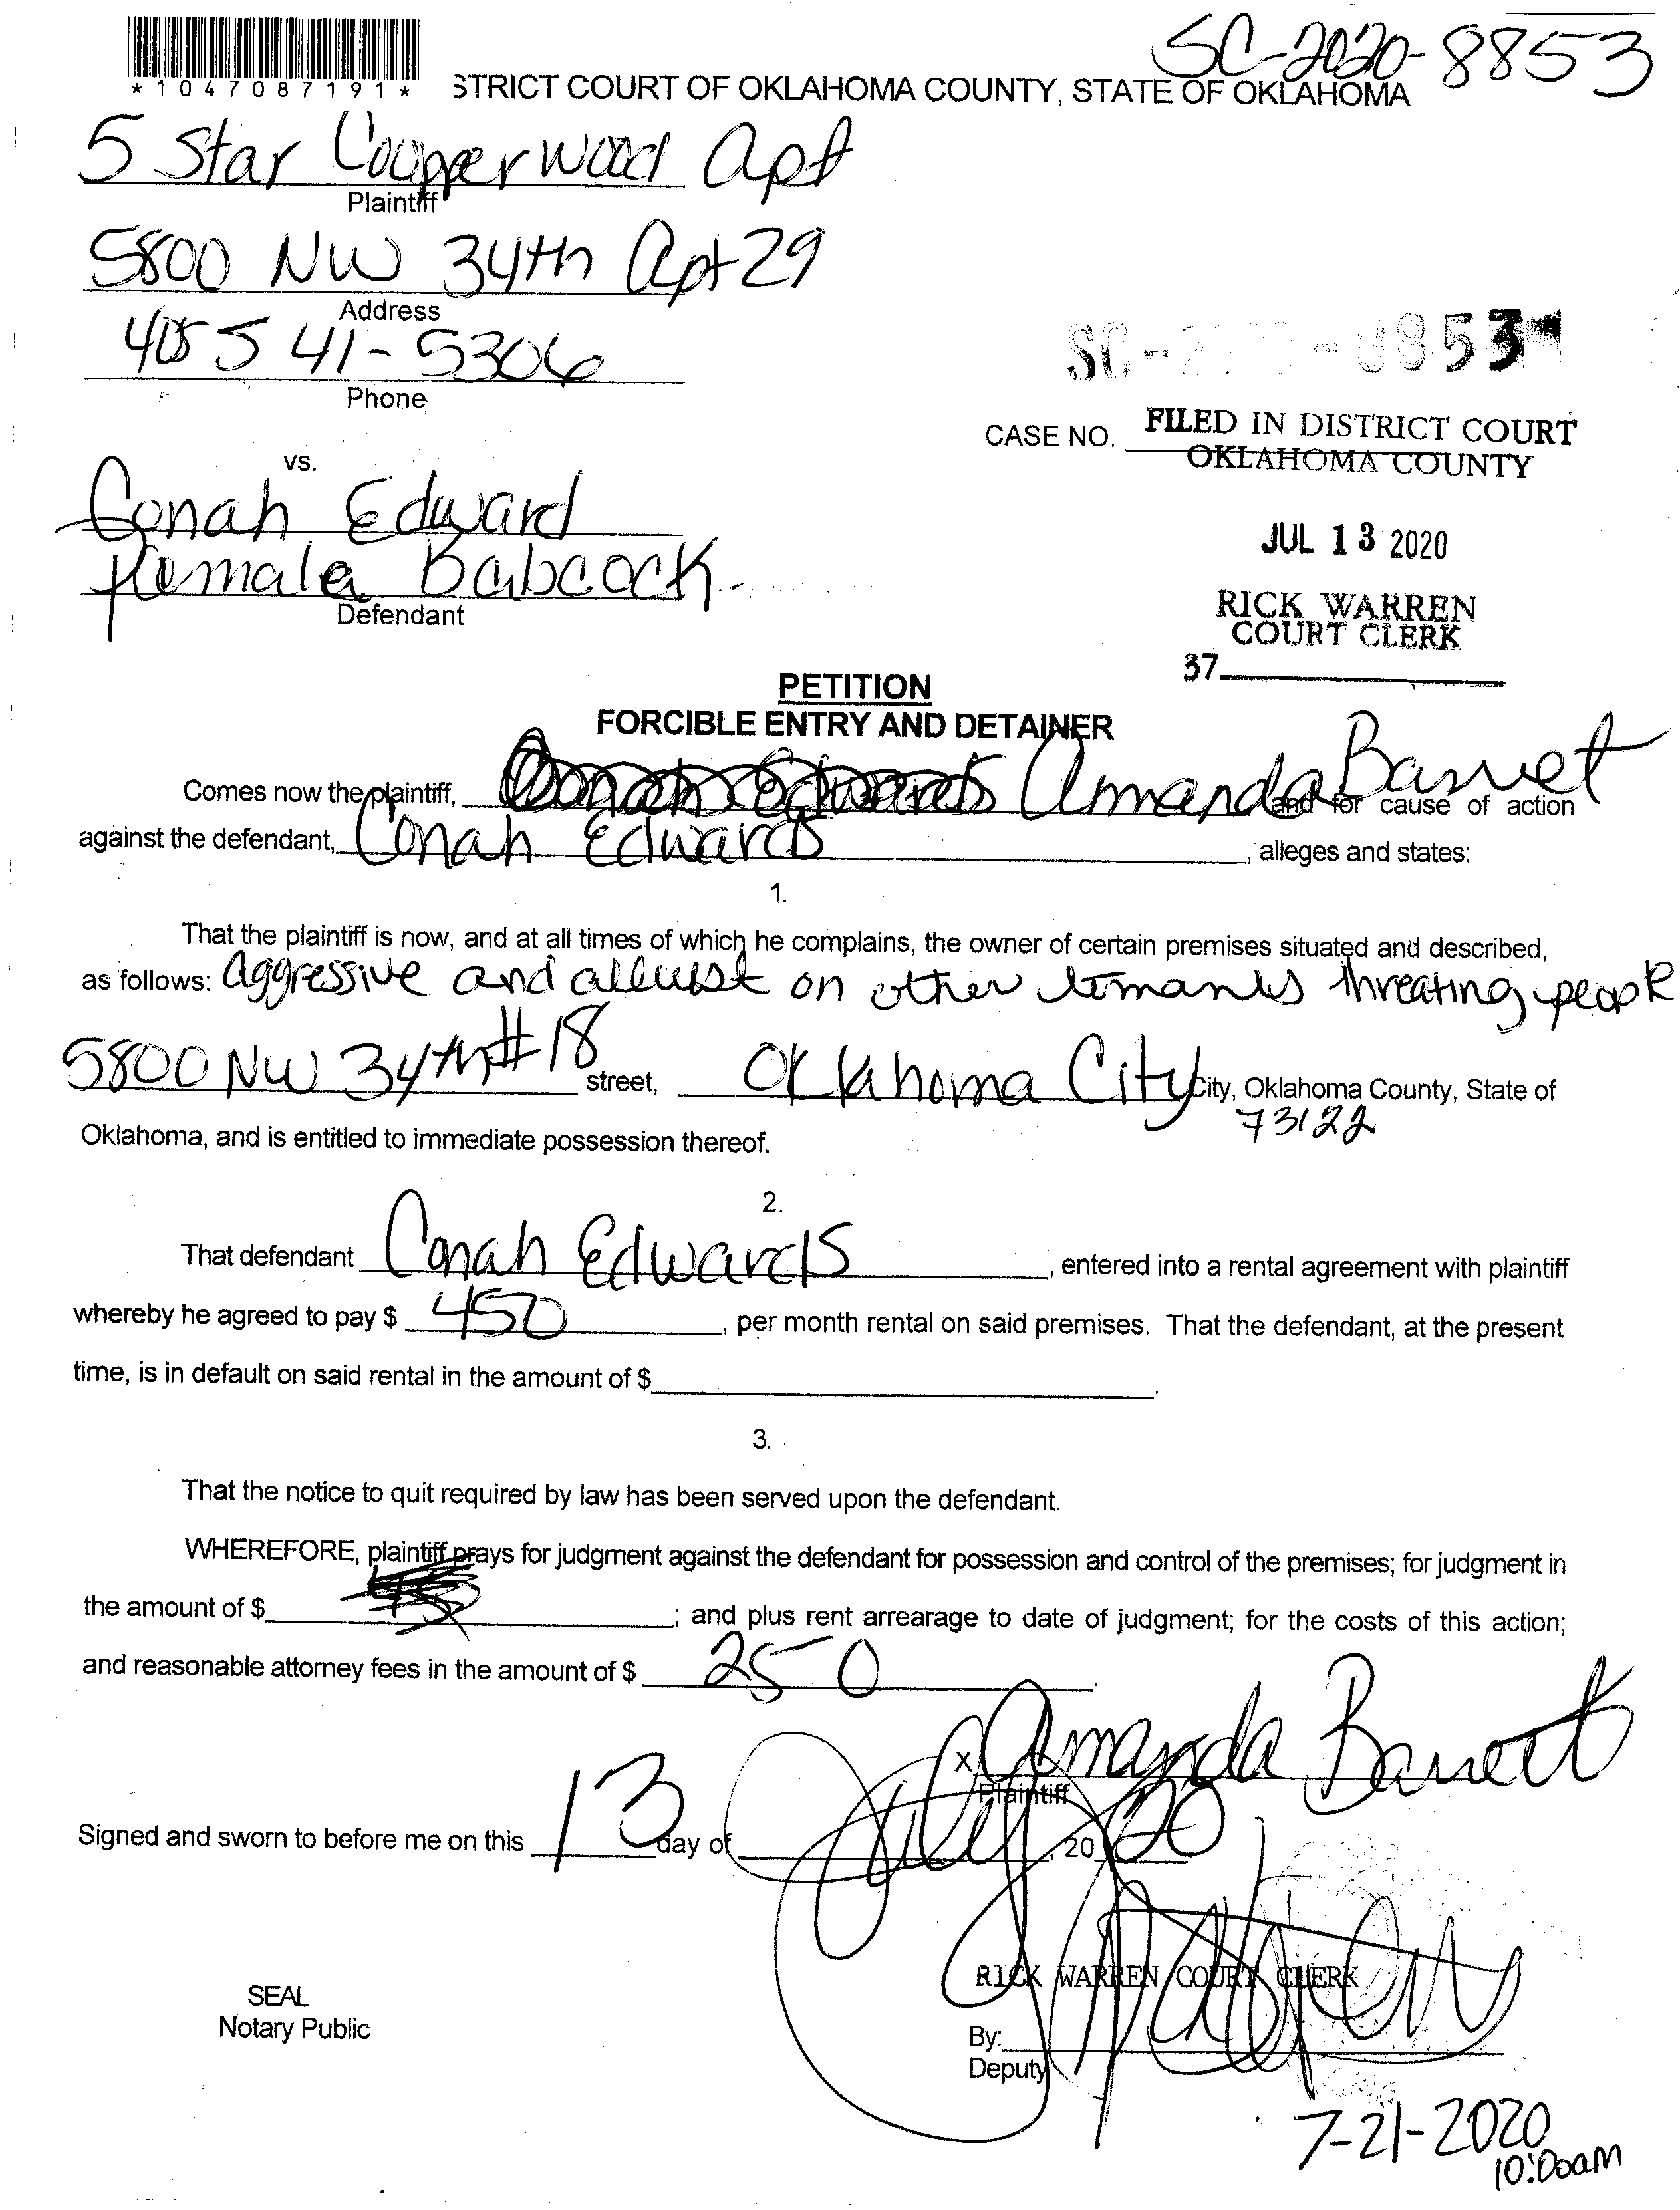 SC-2020-8853
*1047087191*
STRICT COURT OF OKLAHOMA COUNTY, STATE OF OKLAHOMA
5 Star Coupperwood Apt
Plaintiff
5800 NW 34th Apt 29
Address
405 541-5306
Phone
SC-2020-8853
CASE NO.
FILED IN DISTRICT COURT
OKLAHOMA COUNTY
vs.
Conah Edward
JUL 13 2020
Babcock
Defendant
RICK WARREN
COURT CLERK
37
PETITION
FORCIBLE ENTRY AND DETAINER
Comes now the plaintiff, Amanda Barret and for cause of action
against the defendant, Conah Edwards, alleges and states:
1.
That the plaintiff is now, and at all times of which he complains, the owner of certain premises situated and described,
as follows: Aggressive and on other threating people
5800 NW 34th #18 street, Oklahoma City City, Oklahoma County, State of
73122
Oklahoma, and is entitled to immediate possession thereof.
2.
That defendant Conah Edwards, entered into a rental agreement with plaintiff
whereby he agreed to pay $ 450, per month rental on said premises. That the defendant, at the present
time, is in default on said rental in the amount of $ .
3.
That the notice to quit required by law has been served upon the defendant.
WHEREFORE, plaintiff prays for judgment against the defendant for possession and control of the premises; for judgment in
the amount of $ ; and plus rent arrearage to date of judgment; for the costs of this action;
and reasonable attorney fees in the amount of $ 250.
X Amanda Barrett
Plaintiff
Signed and sworn to before me on this 13 day of July, 2020
RICK WARREN COURT CLERK
SEAL
Notary Public
By:
Deputy
7-21-2020
10:00am